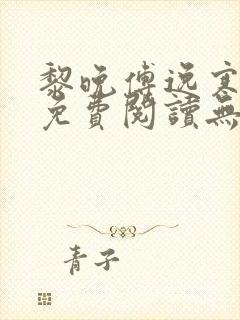 黎晚傅逸寒
免費閱讀無
青子